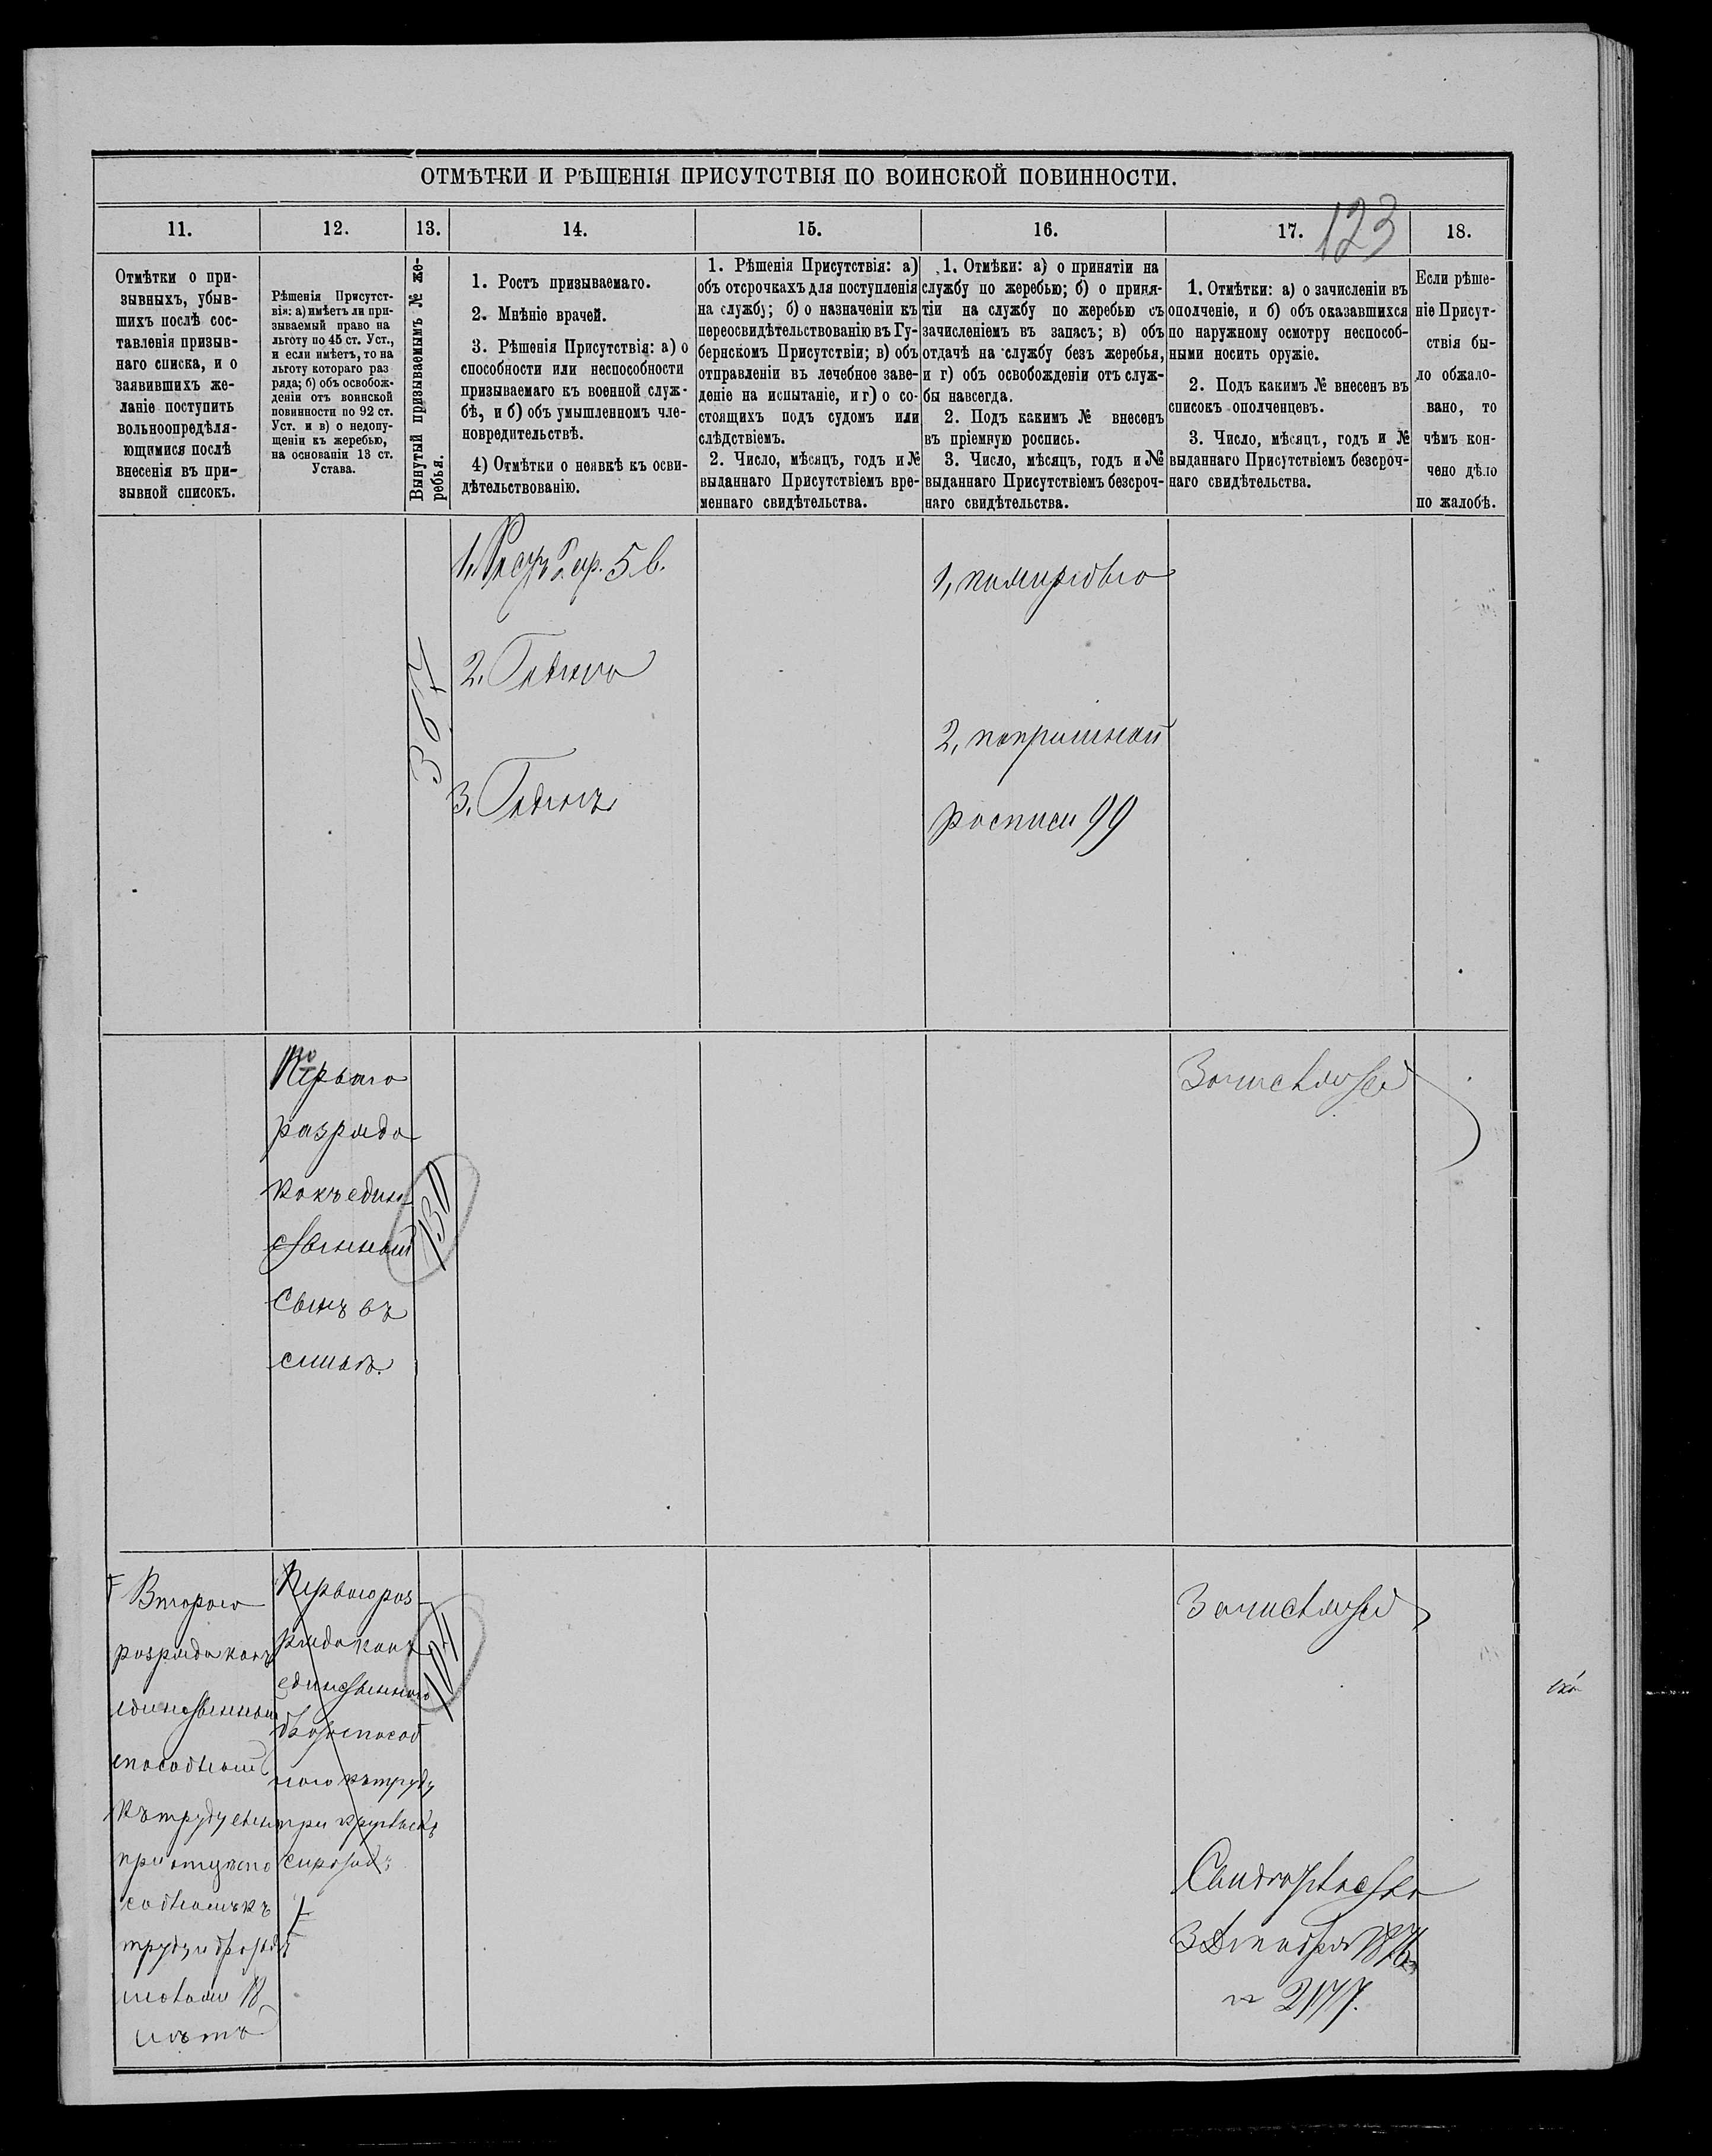 ОТМѢТКИ И РѢШЕНІЯ ПРИСУТСТВІЯ ПО ВОИНСКОЙ ПОВИННОСТИ.
123
11.
12.
13.
14.
15.
16.
17.
18.
Отмѣтки о при-
зывныхъ, убыв-
шихъ послѣ сос-
тавленія призыв-
наго списка, и о
заявившихъ же-
ланіе поступить
вольноопредѣля-
ющимися послѣ
внесенія въ при-
зывной списокъ.
Рѣшенія Присутст-
вія: а) имѣетъ ли при-
зываемый право на
льготу по 45 ст. Уст.,
и если имѣетъ, то на
льготу котораго раз
ряда; б) объ освобож-
деніи отъ воинской
повинности по 92 ст.
Уст. и в) о недопу-
щеніи къ жеребью,
на основаніи 13 ст.
Устава.
Вынутый призываемымъ № же-
ребья.
1. Ростъ призываемаго.
2. Мнѣніе врачей.
3. Рѣшенія Присутствія: а) о
способности или неспособности
призываемаго къ военной служ-
бѣ, и б) объ умышленномъ чле-
новредительствѣ.
4) Отмѣтки о неявкѣ къ осви-
дѣтельствованію.
1. Рѣшенія Присутствія: а)
объ отсрочкахъ для поступленія
на службу; б) о назначеніи къ
переосвидѣтельствованію въ Гу-
бернскомъ Присутствіи; в) объ
отправленіи въ лечебное заве-
деніе на испытаніе, и г) о со-
стоящихъ подъ судомъ или
слѣдствіемъ.
2. Число, мѣсяцъ, годъ и №
выданнаго Присутствіемъ вре-
меннаго свидѣтельства.
1. Отмѣки: а) о принятіи на
службу по жеребью; б) о приня-
тіи на службу по жеребью съ
зачисленіемъ въ запасъ; в) объ
отдачѣ на службу безъ жеребья,
и г) объ освобожденіи отъ служ-
бы навсегда.
2. Подъ какимъ № внесенъ
въ пріемную роспись.
3. Число, мѣсяцъ, годъ и №
выданнаго Присутствіемъ безсроч-
наго свидѣтельства.
1. Отмѣтки: а) о зачисленіи въ
ополченіе, и б) объ оказавшихся
по наружному осмотру неспособ-
ными носить оружіе.
2. Подъ какимъ № внесенъ въ
списокъ ополченцевъ.
3. Число, мѣсяцъ, годъ и №
выданнаго Присутствіемъ безсроч-
наго свидѣтельства.
Если рѣше-
ніе Присут-
ствія бы-
ло обжало-
вано, то
чѣмъ кон-
чено дѣло
по жалобѣ.
367
1. Ростъ 2 ар. 5 в.
2. Годенъ
3. Годенъ
2, попріемной
росписи 99
Перваго
разряда
какъ един
ственный
сынъ въ
семьѣ.
130
Зачисляется
Второго
разряда какъ
единственный
способный
къ труду сын
при отцѣ спо
собномъ къ
труду и братѣ
моложе 18
лѣтъ
Перваго раз
ряда какъ
единственнаго
брата способ
наго къ труду
при круглыхъ
сиротахъ
Зачисляется
Свидѣтельство
3 Декабря 1876
№ 2177.